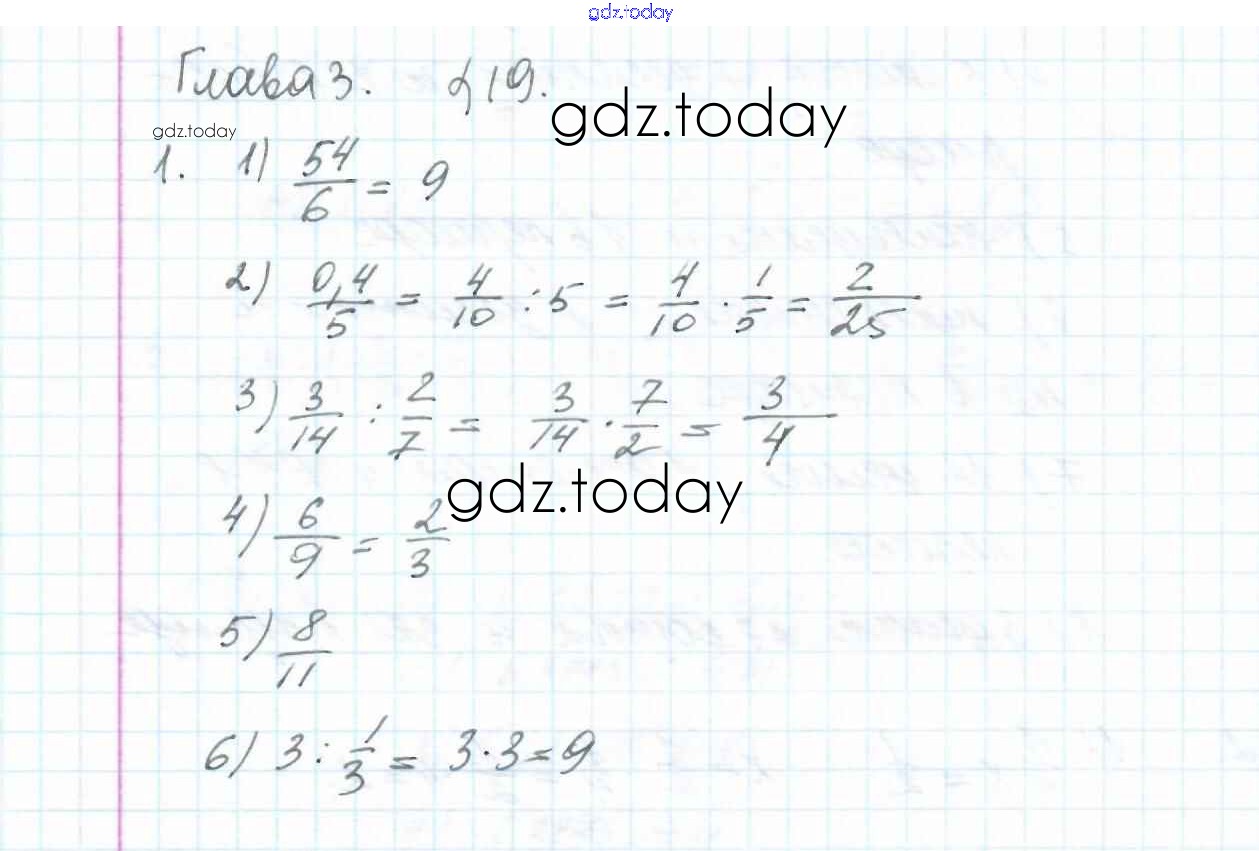 gdz.today
Глава 3. §19.
gdz.today
gdz.today
1. 1) 54/6 = 9
2) 0,4/5 = 4/10 : 5 = 4/10 · 1/5 = 2/25
3) 3/14 : 2/7 = 3/14 · 7/2 = 3/4
gdz.today
4) 6/9 = 2/3
5) 8/11
6) 3 : 1/3 = 3 · 3 = 9